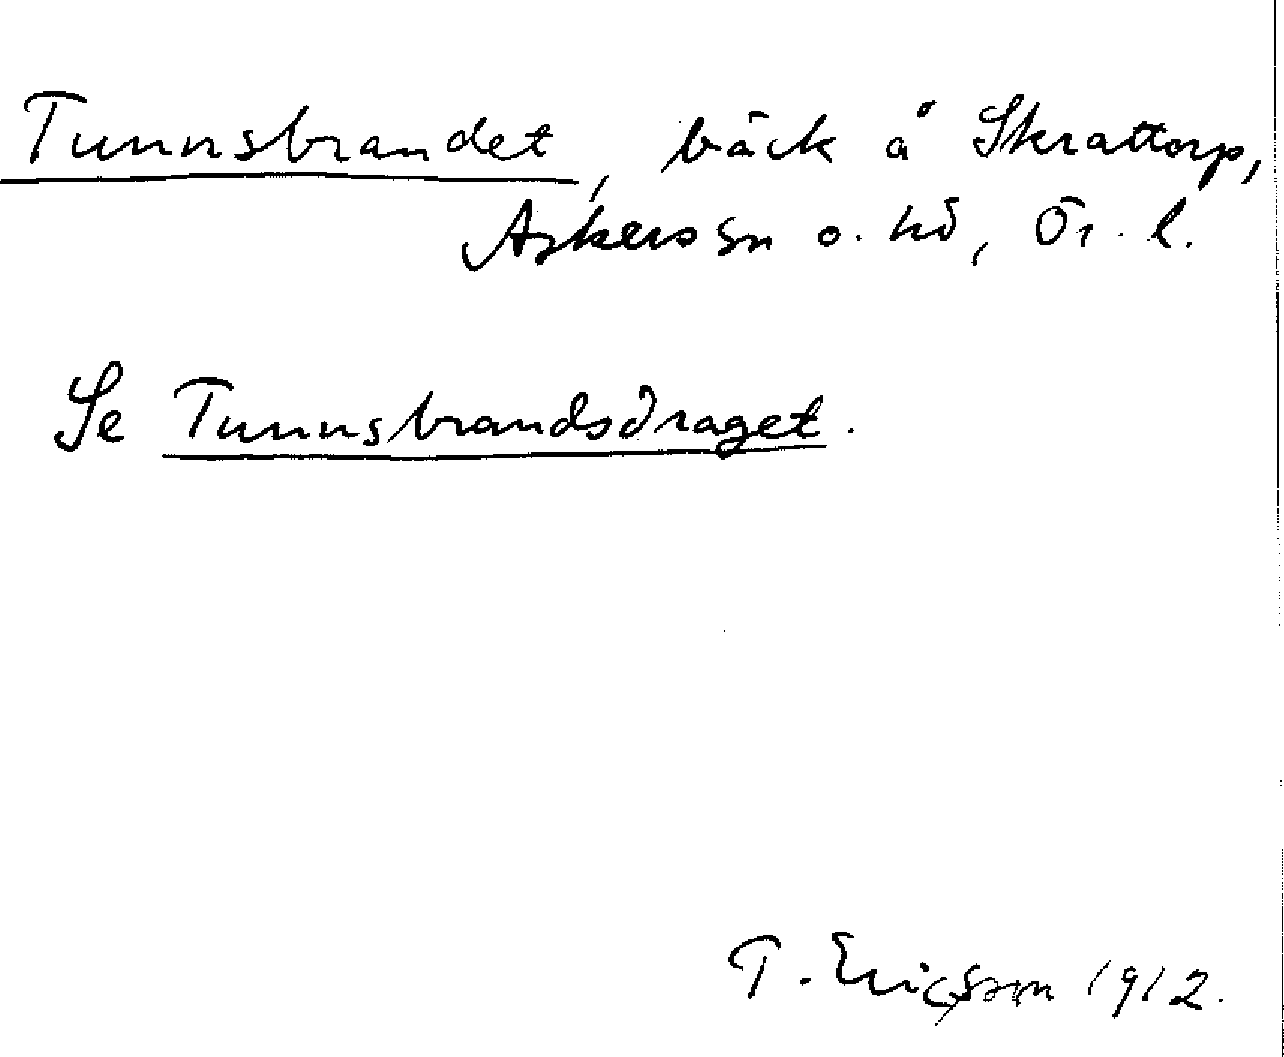 Tunnsbrandet, bäck å Skrattorp,
Askers sn o. hd, Ör. l.
Se Tunnsbrandsdraget.
T. Ericsson 1912.